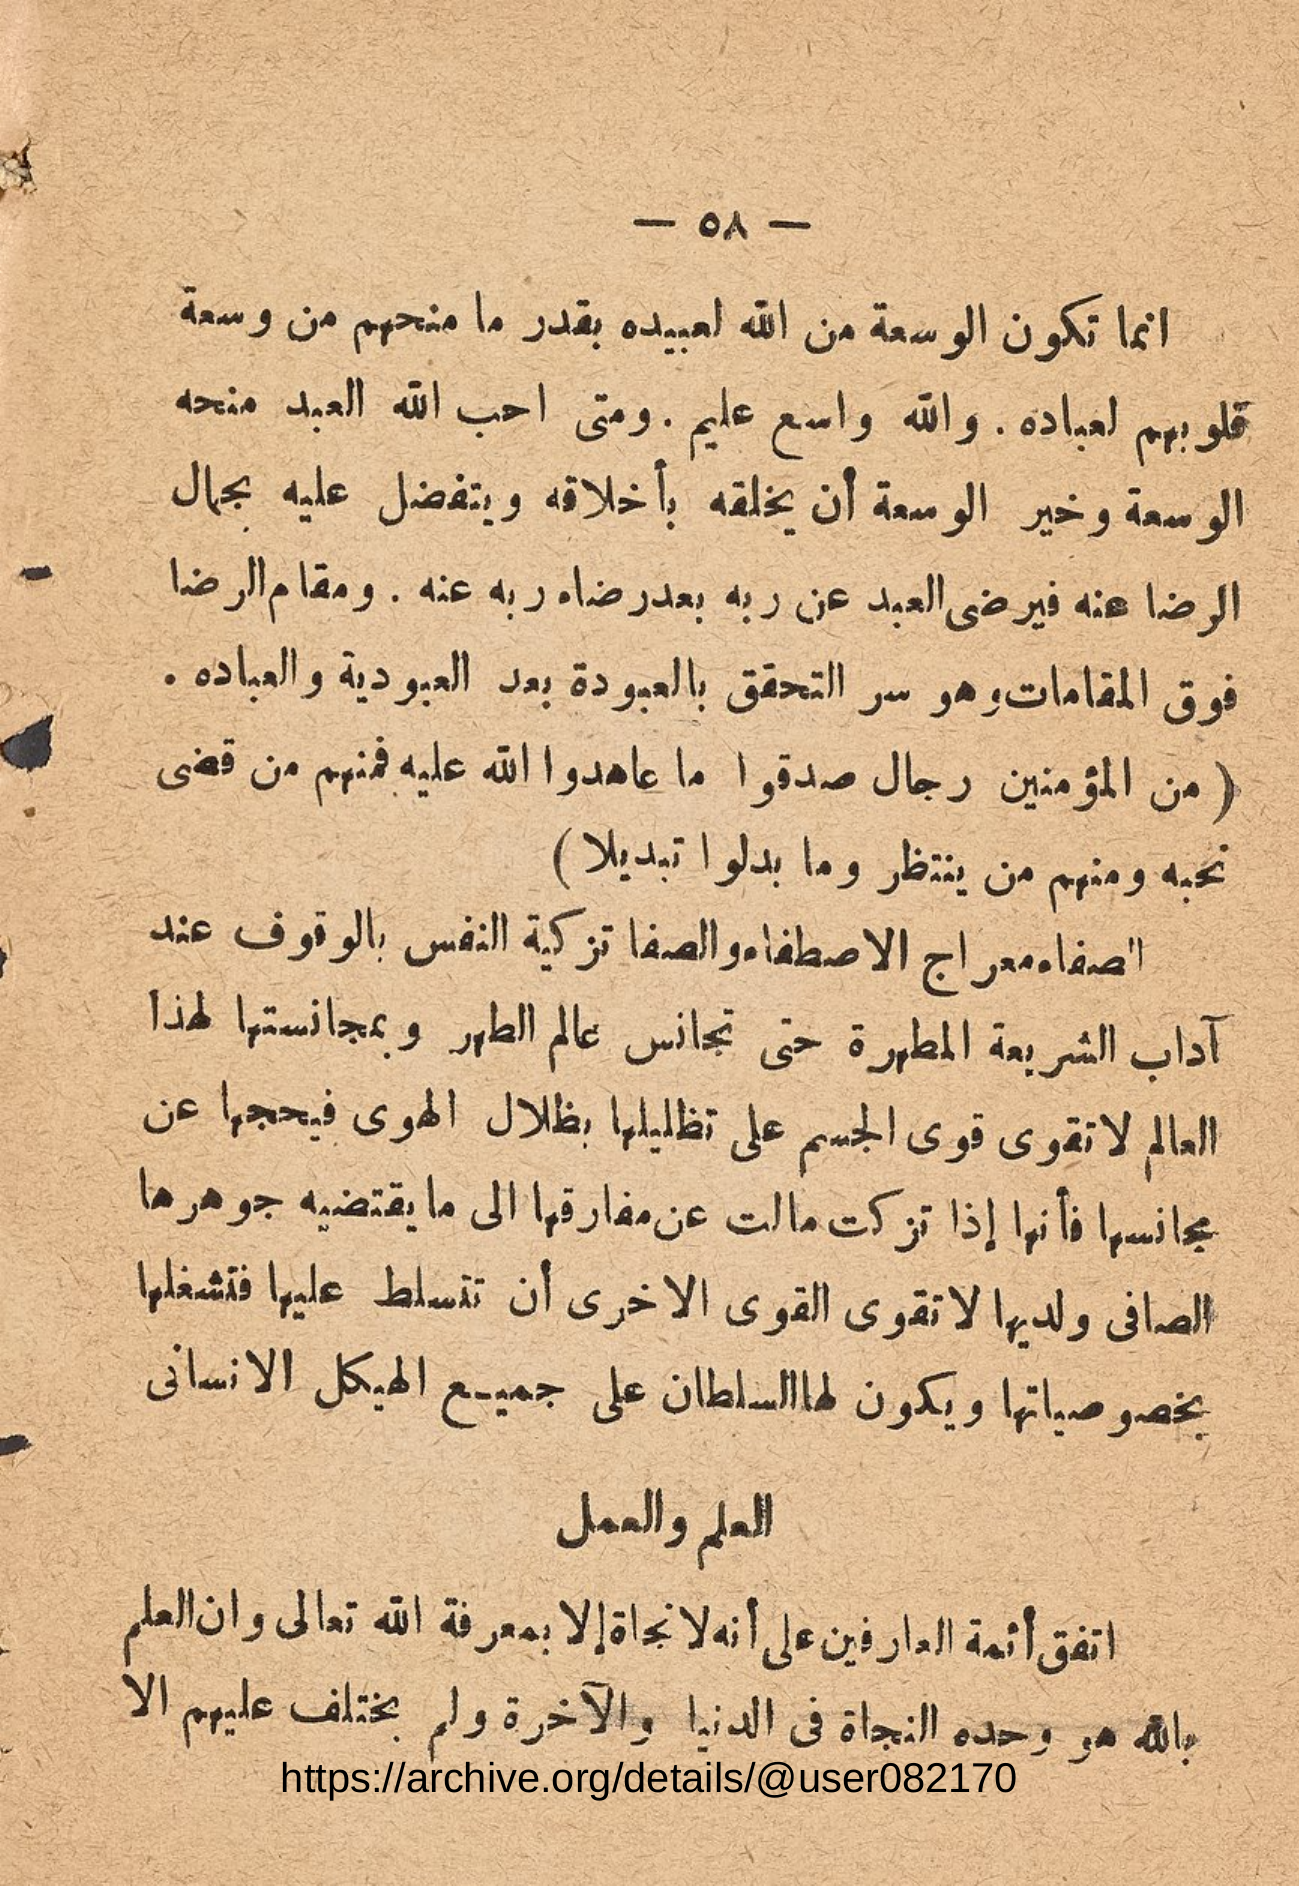 — ٥٨ —
انما تكون الوسعة من الله لعبيده بقدر ما منحهم من وسعة
قلوبهم لعباده . والله واسع عليم . ومتى احب الله العبد منحه
الوسعة وخير الوسعة أن يخلقه بأخلاقه ويتفضل عليه بجمال
الرضا عنه فيرضى العبد عن ربه بعد رضاه ربه عنه . ومقام الرضا
فوق المقامات وهو سر التحقق بالعبودة بعد العبودية والعباده .
( من المؤمنين رجال صدقوا ما عاهدوا الله عليه فمنهم من قضى
نحبه ومنهم من ينتظر وما بدلوا تبديلا )
الصفاء معراج الاصطفاء والصفا تزكية النفس بالوقوف عند
آداب الشريعة المطهرة حتى تجانس عالم الطهر وبمجانستها لهذا
العالم لا تقوى قوى الجسم على تظليلها بظلال الهوى فيحجبها عن
مجانسها فأنها إذا تزكت مالت عن مفارقها الى ما يقتضيه جوهرها
الصافى ولديها لا تقوى القوى الاخرى أن تتسلط عليها فتشغلها
بخصوصياتها ويكون لها السلطان على جميع الهيكل الانسانى
العلم والعمل
اتفق أئمة العارفين على أنه لا نجاة إلا بمعرفة الله تعالى وان العلم
بالله هو وحده النجاة فى الدنيا والآخرة ولم يختلف عليهم الا
https://archive.org/details/@user082170